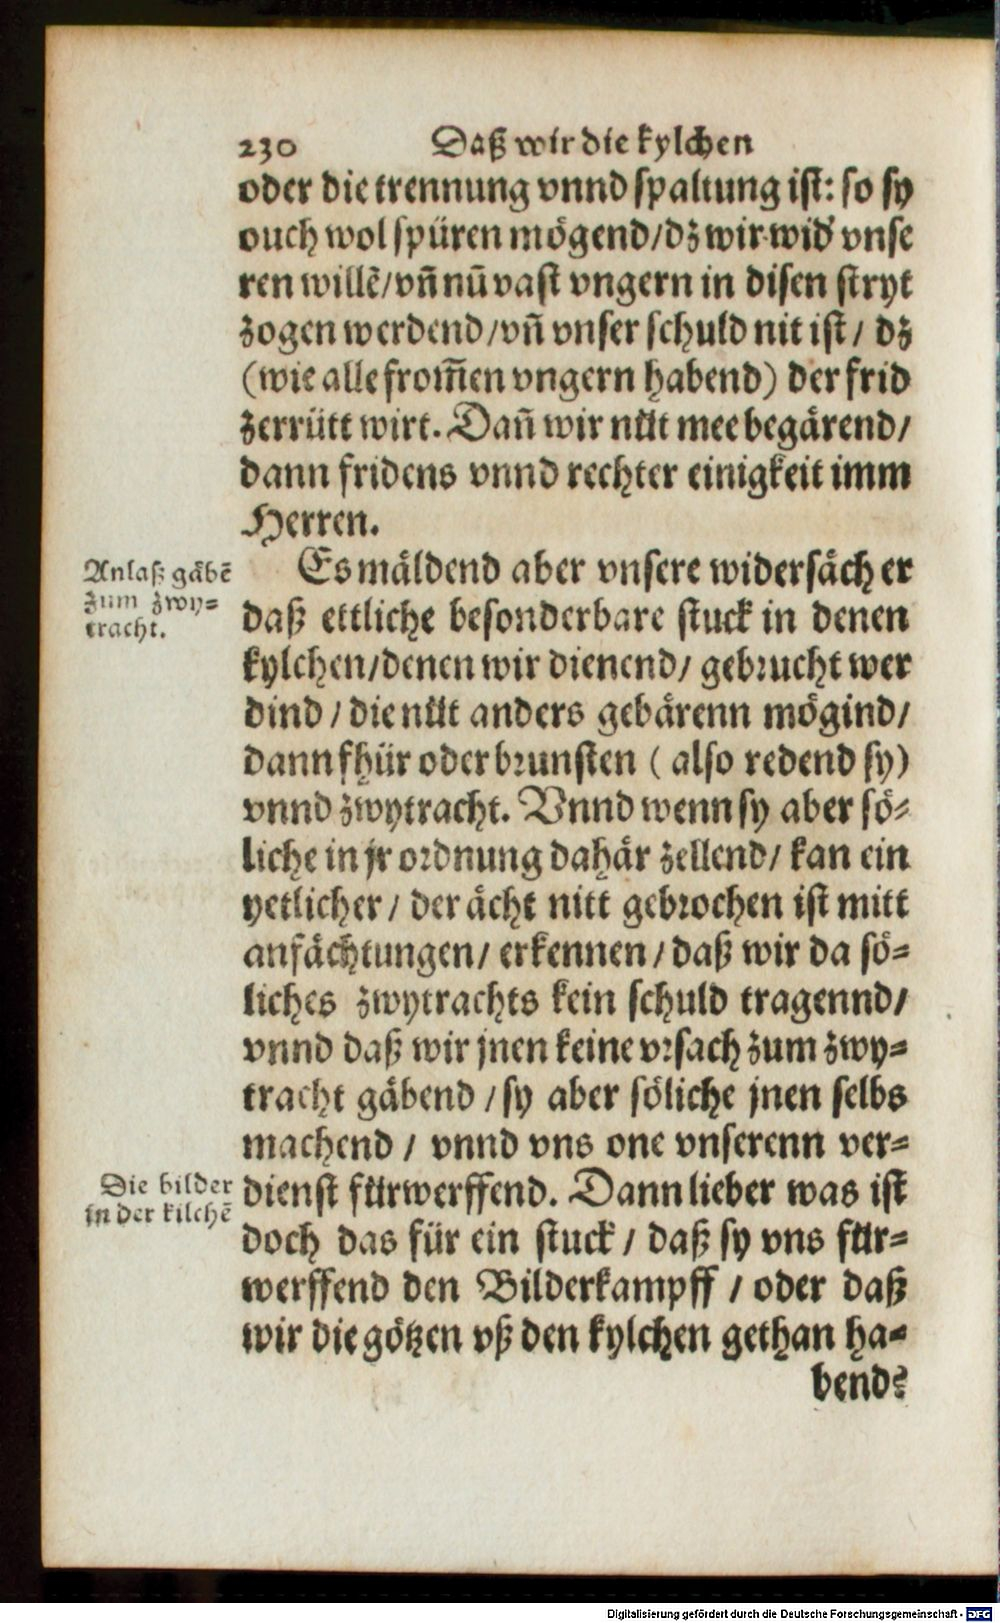 230 Daß wir die kylchen
oder die trennung vnnd spaltung ist: so sy
ouch wol spüren mögend/dz wir wid' vnse
ren willē/vñ nū vast vngern in disen stryt
zogen werdend/vñ vnser schuld nit ist/ dz
(wie alle from̄en vngern habend) der frid
zerrütt wirt. Dañ wir nüt mee begärend/
dann fridens vnnd rechter einigkeit imm
Herren.
Anlaß gäbē
zum zwy=
tracht.
Es mäldend aber vnsere widersächer
daß ettliche besonderbare stuck in denen
kylchen/denen wir dienend/ gebrucht wer
dind/ die nüt anders gebärenn mögind/
dann fhür oder brunsten ( also redend sy)
vnnd zwytracht. Vnnd wenn sy aber sö=
liche in jr ordnung dahär zellend/ kan ein
yetlicher/ der ächt nitt gebrochen ist mitt
anfächtungen/ erkennen/ daß wir da sö=
liches zwytrachts kein schuld tragennd/
vnnd daß wir jnen keine vrsach zum zwy=
tracht gäbend /sy aber söliche jnen selbs
machend / vnnd vns one vnserenn ver=
Die bilder
in der kilchē
dienst fürwerffend. Dann lieber was ist
doch das für ein stuck / daß sy vns für=
werffend den Bilderkampff / oder daß
wir die götzen vß den kylchen gethan ha=
bend?
Digitalisierung gefördert durch die Deutsche Forschungsgemeinschaft - DFG